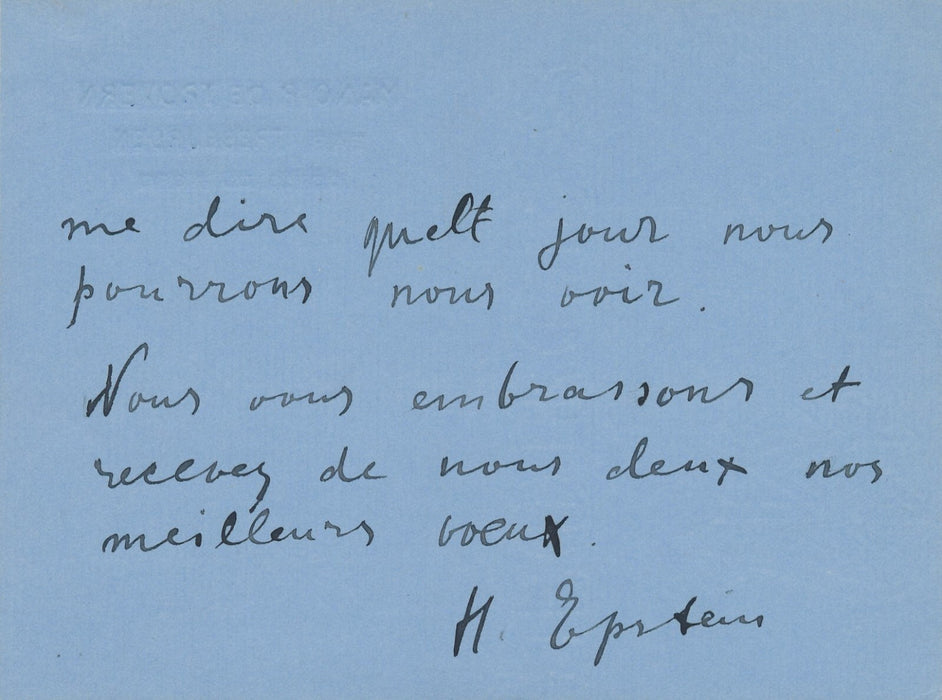 me dire quelt jour nous
pourrons nous voir.
Nous vous embrassons et
recevez de nous deux nos
meilleurs voeux.
H. Epstein